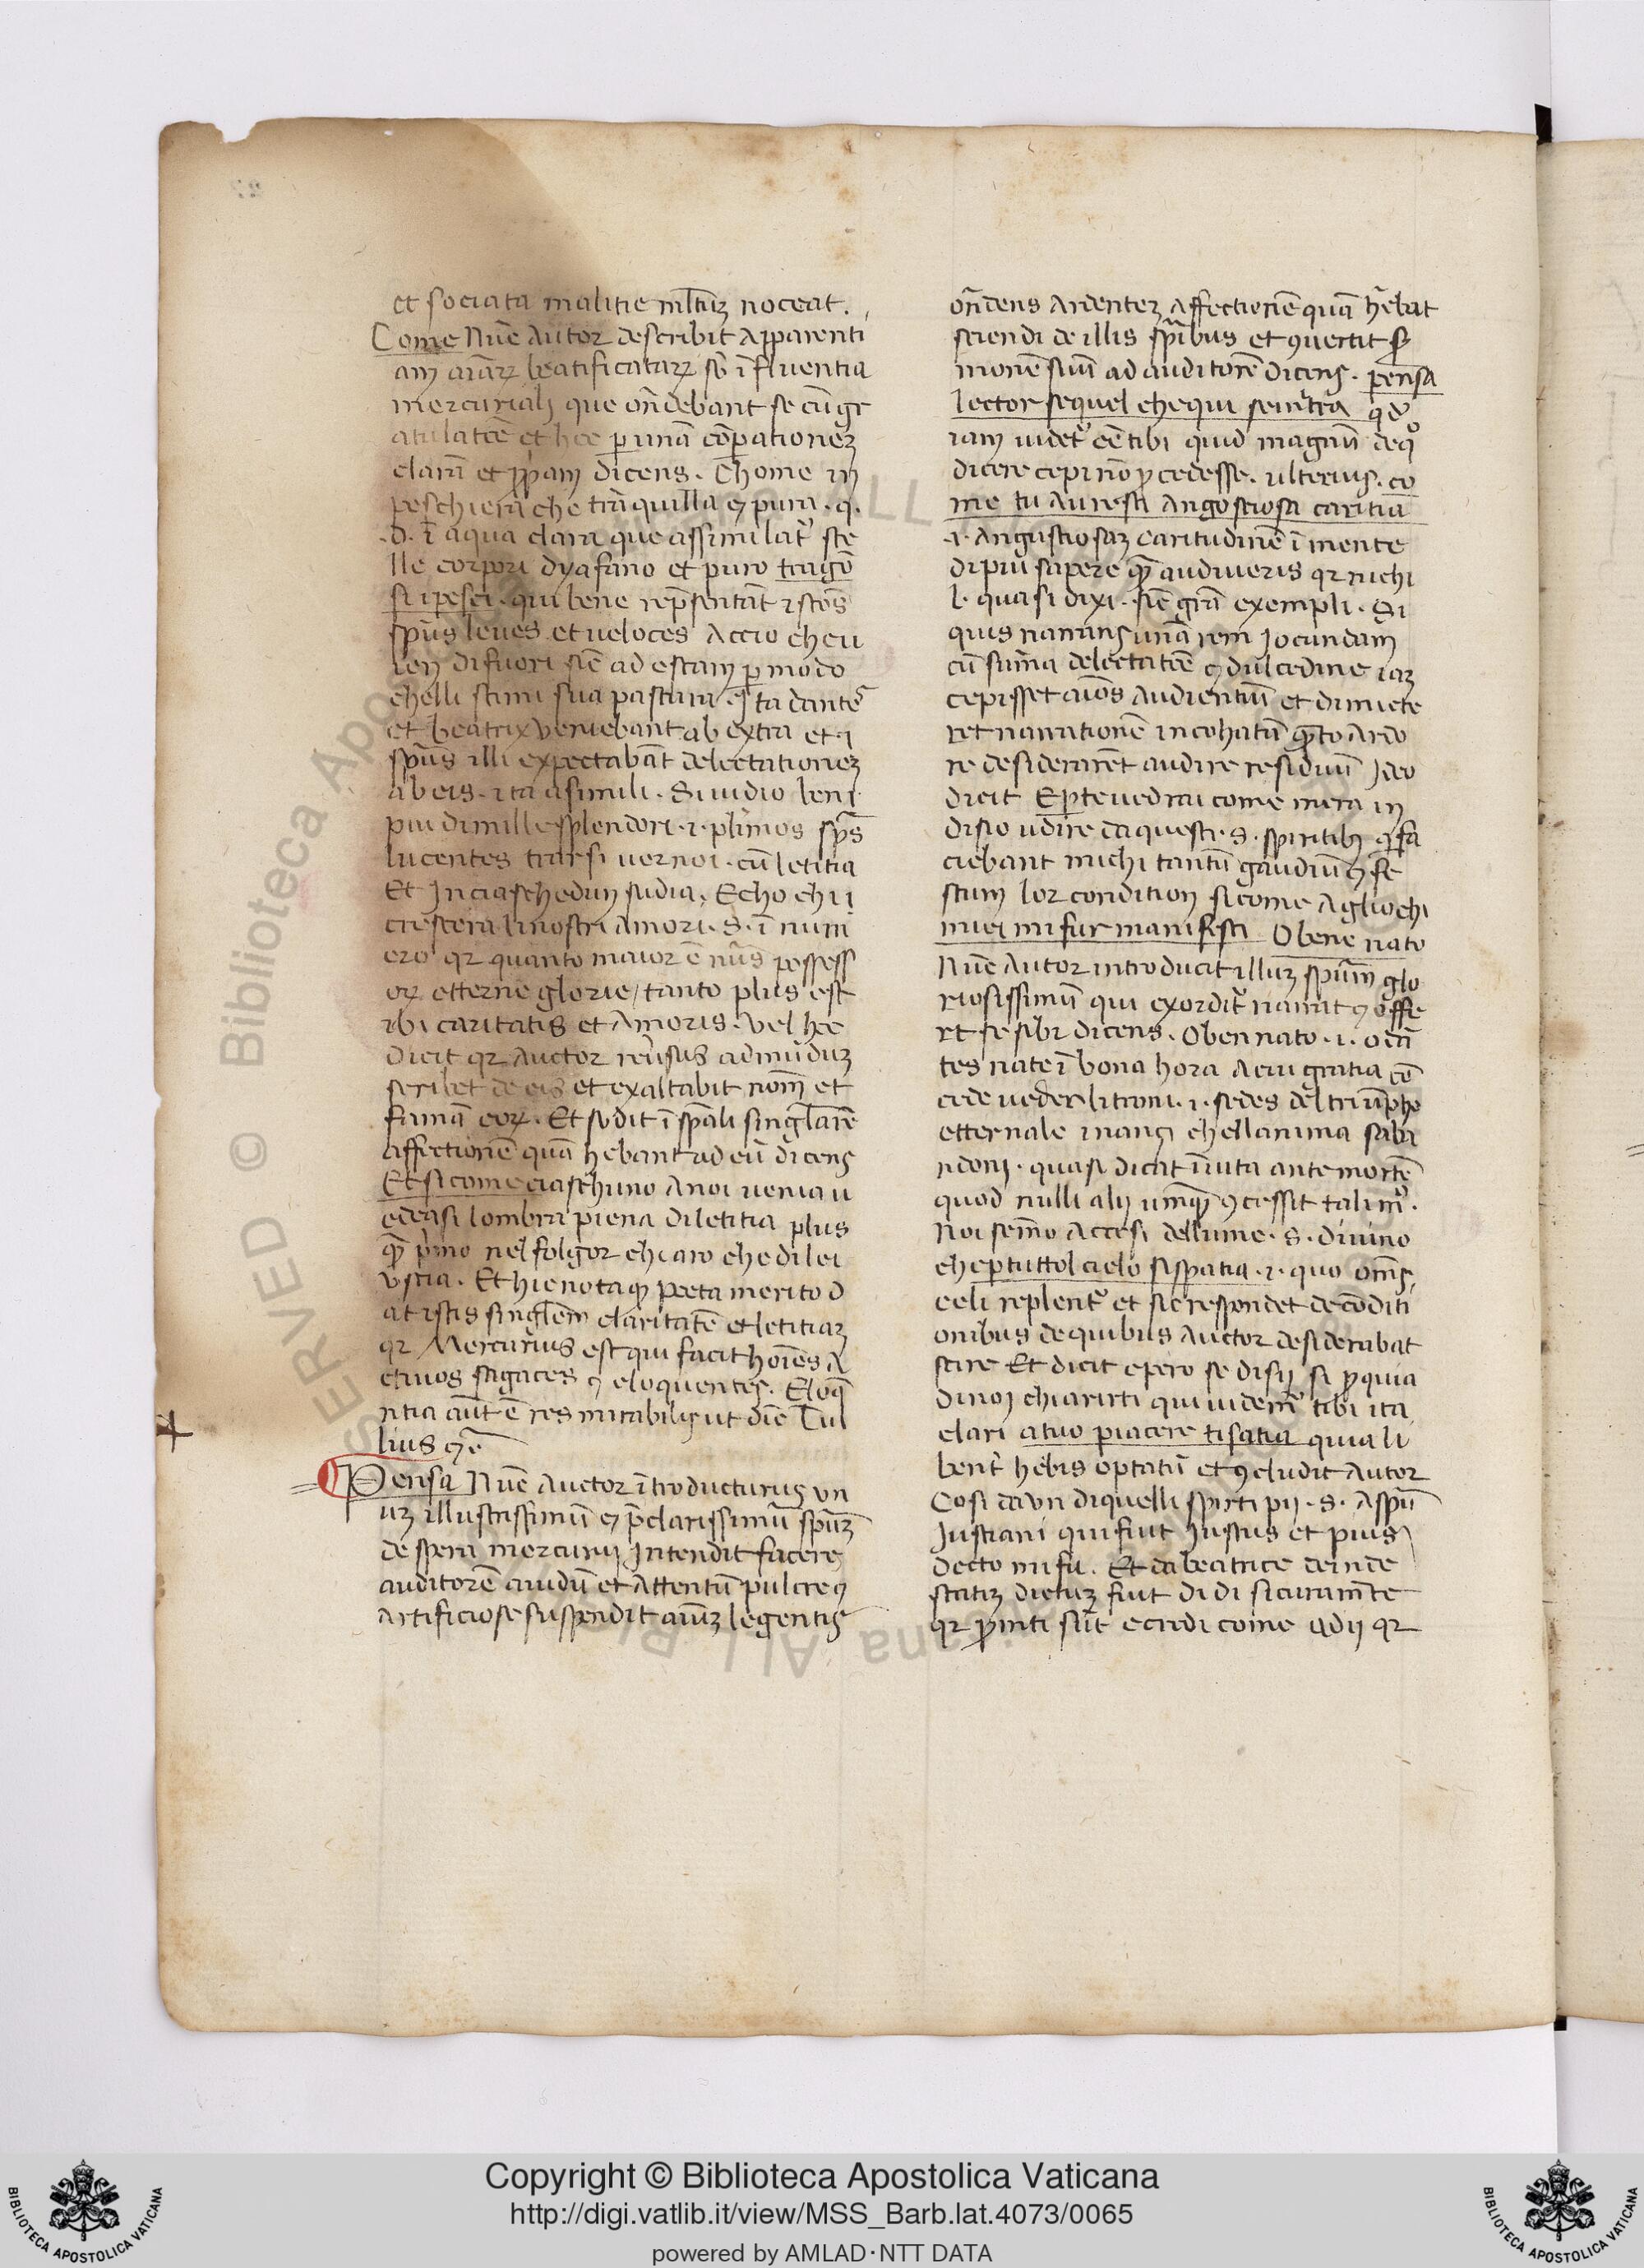 et sociata malitie mĺtuꝫ noceat.
Come Nūc Autor describit Apparenti
am aīaꝝ beatificataꝝ sb īfluentia
mercurialꝫ que on̄debant se cū gr
atulatōe et hec per unā cōpationeꝫ
clarā et ꝓpam dicens. Chome in
peschiera che trāquilla ⁊ pura. q.
.d. ī aqua clara que assimilat᷑ ste
lle corpori dyafano et puro tragō
si i pesci. qui bene rep̄sentāt istos
sp̄us leues et ueloces Accio che u
ien di fuori sic̄ ad estam per modo
chelli stimi sua pastura. Ita dante
et beatrix veniebant ab extra et i
sp̄us illi expectabāt delectationeꝫ
ab eis. ita a simili. Si uidio ben i
piu di mille splendori .i. pl̄imos sp̄s
lucentes trarsi uer noi. cū letitia
Et In ciaschedun sudia. Echo chi i
crescera li nostri Amori. S. ī num
ero qr quanto maior ē nūs possess
oꝝ etterne glorie / tanto plus est
ibi caritatis et Amoris. vel hec
dicit qr Auctor reuersus ad mūduꝫ
scribet de eis et exaltabit nom̄ et
famā eoꝝ. Et sbdit ī sp̄ali singl̄are
affectionē quā hēbant ad eū dicens
Et si come ciaschuno A noi uenia u
edeasi lombra piena di letitia plus
qm̄ p̄mo nel folgor chiaro che di lei
vscia. Et hic nota qꝫ Poeta merito d
at istis singl̄em claritatē et letitiaꝫ
qr Mercurius est qui facit hoīes A
ctiuos sagaces ⁊ eloquentes. Eloq̄
ntia aūt ē res mirabilis ut dic̄ Tul
lius ⁊c̄
Pensa Nūc Auctor ītroducturus vn
uꝫ illustrissimū ⁊ p̄clarissimū sp̄uꝫ
de spera mercurij Intendit facere
auditorē auidū et Attentū pulcre ⁊
artificiose suspendit aīuꝫ legentis
on̄dens Ardenteꝫ Affectionē quā hēbat
sciendi de illis sp̄ibus et ꝯuertit ser
monē suū ad auditorē dicens. pensa
lector se quel che qui
iam uidet᷑ eē tibi quid magnū de q°
dicere cepi nō ꝓcedesse. ulterius. co
me tu Auresti Angosciosa caritia
.i. Angustiosaꝫ caritudinē ī mente
di piu sapere qm̄ audiueris qr nichi
l. quasi dixi. sic̄ grā exempli. Si
quis narrans unā rem Jocundam
cū sum̄a delectatōe ⁊ dulcedine iaꝫ
cepisset aīos Audientiū et dimicte
ret narrationē incohatā quāto Ardo
re desiderarēt audire residuū Ideo
dicit E p te uedrai come mera in
disio udire da questi. S. spiritibꝫ qͥ fa
ciebant michi tantū gaudiū ⁊ fe
stum lor condition si come Agliochi
miei mi fur manifesti O bene nato
Nūc Autor introducit illuꝫ sp̄um glo
riosissimū qui exordit᷑ narrat ⁊ offe
rt se sibi dicens. O ben nato .i. o dā
tes nate ī bona hora A cui gratia cō
cede ueder li troni .i. sedes del triūpho
etternale inanzi chellanima saba
ndoni. quasi dicat ī uita ante mortē
quod nulli alij umqm̄ ꝯcessit talimo.
Noi semo Accesi dellume. S. diuino
che p tuttol cielo si spatia .i. quo om̄s
celi replent᷑ et sic respondet de cōditi
onibus de quibus Auctor desiderabat
scire Et dicit e pero se disij si ꝓ quia
di noi chiarirti qui uidem᷑ tibi ita
clari a tuo piacere ti satia quia li
bent᷑ hēbis optatū et ꝯcludit Autor
Cosi da vn di quelli spirti pij. S. A sp̄u
Justiani qui fuit Justus et pius
decto mi fu. Et da beatrice deinde
statiꝫ dictuꝫ fuit di di sicuramēte
qr prōti sūt e credi come adij qr
Copyright © Biblioteca Apostolica Vaticana
http://digi.vatlib.it/view/MSS_Barb.lat.4073/0065
powered by AMLAD·NTT DATA